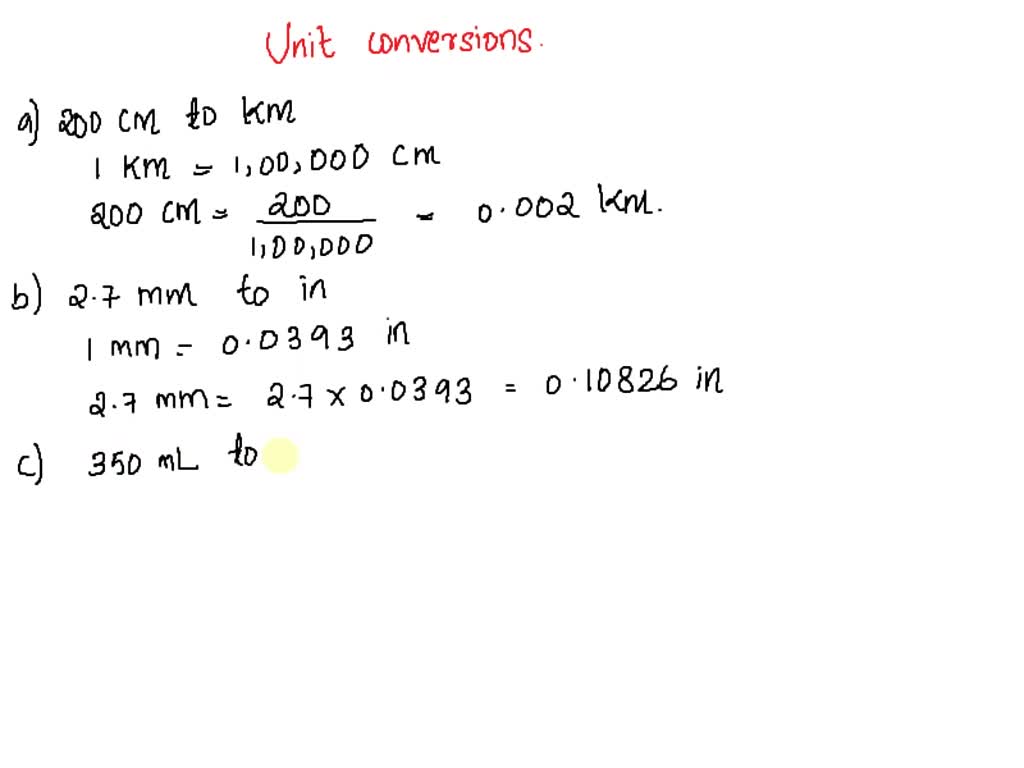 Unit conversions.
a) 200 cm to km
1 km = 1,00,000 cm
200 cm = 200 / 1,00,000 = 0.002 km.
b) 2.7 mm to in
1 mm = 0.0393 in
2.7 mm = 2.7 x 0.0393 = 0.10826 in
c) 350 mL to